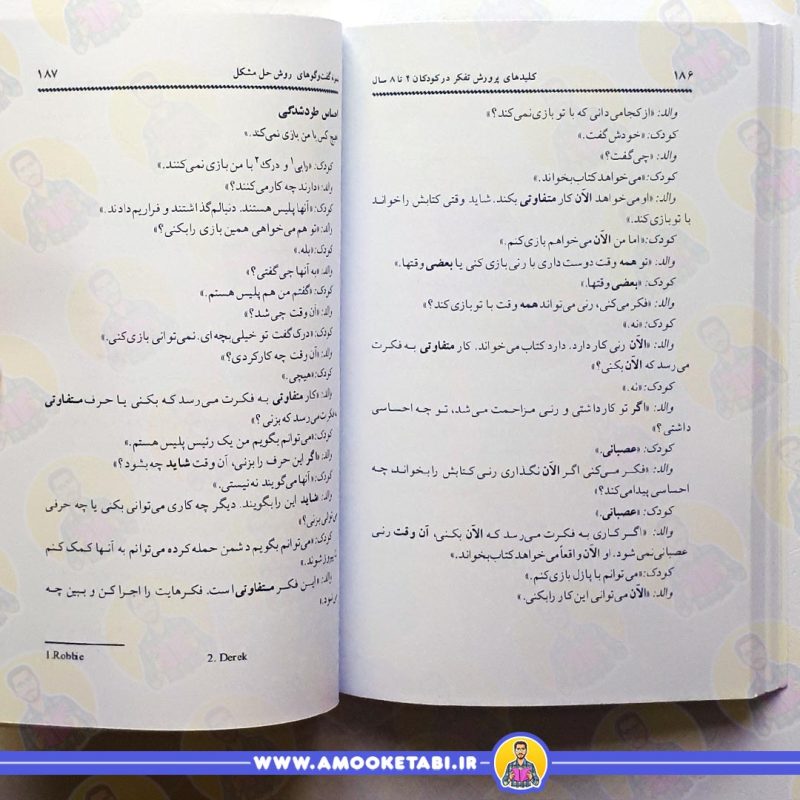 ۱۸۶ کلیدهای پرورش تفکر در کودکان ۴ تا ۸ سال
والد: «از کجا می‌دانی که با تو بازی نمی‌کند؟»
کودک: «خودش گفت.»
والد: «چی گفت؟»
کودک: «می‌خواهد کتاب بخواند.»
والد: «او می‌خواهد الآن کار متفاوتی بکند. شاید وقتی کتابش را خواند
با تو بازی کند.»
کودک: «اما من الآن می‌خواهم بازی کنم.»
والد: «تو همه وقت دوست داری با رنی بازی کنی یا بعضی وقتها.»
کودک: «بعضی وقتها.»
والد: «فکر می‌کنی، رنی می‌تواند همه وقت با تو بازی کند؟»
کودک: «نه.»
والد: «الآن رنی کار دارد. دارد کتاب می‌خواند. کار متفاوتی به فکرت
می‌رسد که الآن بکنی؟»
کودک: «نه.»
والد: «اگر تو کار داشتی و رنی مزاحمت می‌شد، تو چه احساسی
داشتی؟»
کودک: «عصبانی.»
والد: «فکر می‌کنی اگر الآن نگذاری رنی کتابش را بخواند چه
احساسی پیدا می‌کند؟»
کودک: «عصبانی.»
والد: «اگر کاری به فکرت می‌رسد که الآن بکنی، آن وقت رنی
عصبانی نمی‌شود. او الآن واقعاً می‌خواهد کتاب بخواند.»
کودک: «می‌توانم با پازل بازی کنم.»
والد: «الآن می‌توانی این کار را بکنی.»
گفت‌وگوهای روش حل مشکل ۱۸۷
احساس طردشدگی
هیچ کس با من بازی نمی‌کند.»
کودک: «رابی۱ و درک۲ با من بازی نمی‌کنند.»
والد: «دارند چه کار می‌کنند؟»
کودک: «آنها پلیس هستند. دنبالم گذاشتند و فراریم دادند.»
والد: «تو هم می‌خواهی همین بازی را بکنی؟»
کودک: «بله.»
والد: «به آنها چی گفتی؟»
کودک: «گفتم من هم پلیس هستم.»
والد: «آن وقت چی شد؟»
کودک: «درک گفت تو خیلی بچه‌ای. نمی‌توانی بازی کنی.»
والد: «آن وقت چه کار کردی؟»
کودک: «هیچی.»
والد: «کار متفاوتی به فکرت می‌رسد که بکنی یا حرف متفاوتی
به فکرت می‌رسد که بزنی؟»
کودک: «می‌توانم بگویم من یک رئیس پلیس هستم.»
والد: «اگر این حرف را بزنی، آن وقت شاید چه بشود؟»
کودک: «آنها می‌گویند نه نیستی.»
والد: «شاید این را بگویند. دیگر چه کاری می‌توانی بکنی یا چه حرفی
می‌توانی بزنی؟»
کودک: «می‌توانم بگویم دشمن حمله کرده می‌توانم به آنها کمک کنم
پیروز شوند.»
والد: «این فکر متفاوتی است. فکرهایت را اجرا کن و ببین چه
1.Robbie 2. Derek
WWW.AMOOKETABI.IR